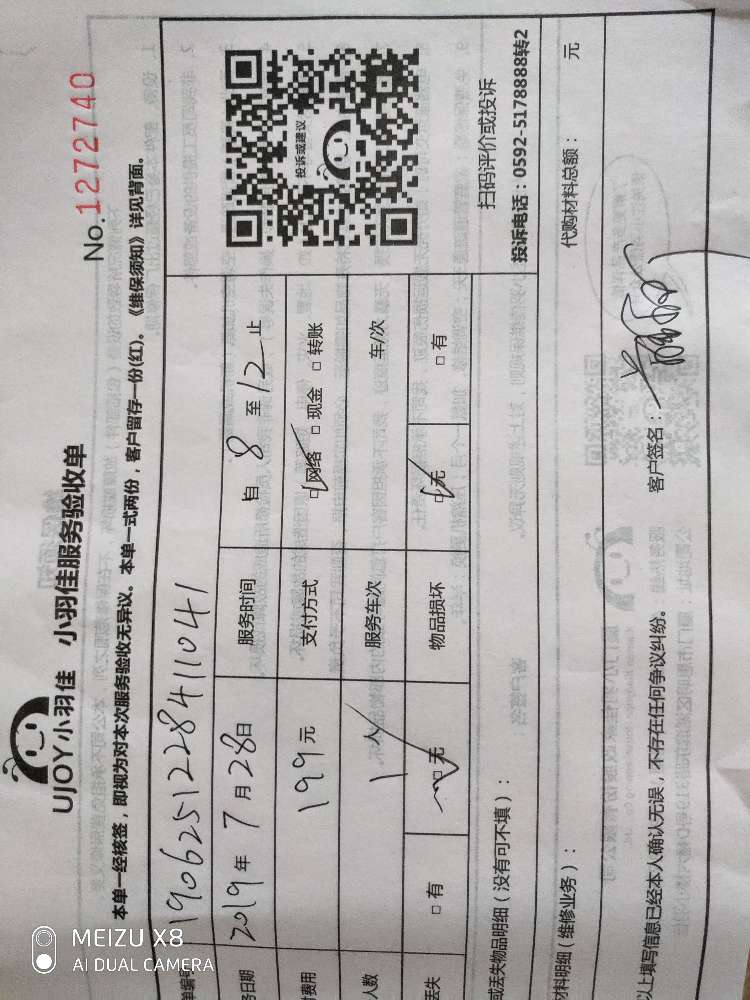 UJOY小羽佳 小羽佳服务验收单
No.1272740
本单一经核签，即视为对本次服务验收无异议。本单一式两份，客户留存一份(红)。《维保须知》详见背面。
单编号 190625122841１041
务日期 2019年 7 月 28日 服务时间 自 8 至 12 止
费用 199元 支付方式 □网络 □现金 □转账
人数 1人 服务车次 车/次
丢失 □有 □无 物品损坏 □无 □有
投诉或建议
扫码评价或投诉
投诉电话：0592-5178888转2
或丢失物品明细（没有可不填）：
材料明细（维修业务）： 代购材料总额： 元
以上填写信息已经本人确认无误，不存在任何争议纠纷。 客户签名：
MEIZU X8
AI DUAL CAMERA